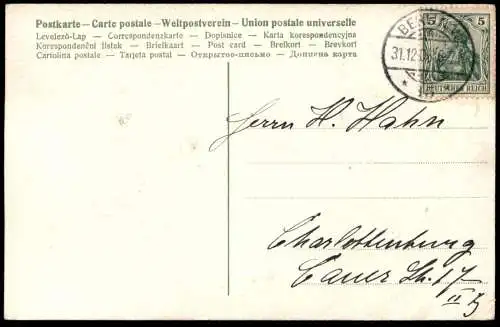 Postkarte – Carte postale – Weltpostverein – Union postale universelle
Levelező-Lap — Correspondenzkarte — Dopisnice — Karta korespondencyjna
Korespondenční lístek — Briefkaart — Post card — Brefkort — Brevkort
Cartolina postale — Tarjeta postal — Открытое-письмо — Дописна карта
5 5
31.12.
DEUTSCHES REICH
Herrn H. Hahn
Charlottenburg
Cauer Str. 17
II